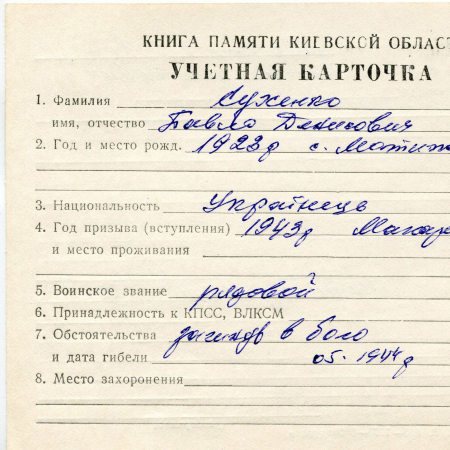 КНИГА ПАМЯТИ КИЕВСКОЙ ОБЛАСТ
УЧЕТНАЯ КАРТОЧКА
1. Фамилия Суженко
имя, отчество Павло Денисович
2. Год и место рожд. 1923р с.
3. Национальность Українець
4. Год призыва (вступления) 1943р
и место проживания
5. Воинское звание рядовой
6. Принадлежность к КПСС, ВЛКСМ
7. Обстоятельства загинув в бою
и дата гибели 05.1944р
8. Место захоронения